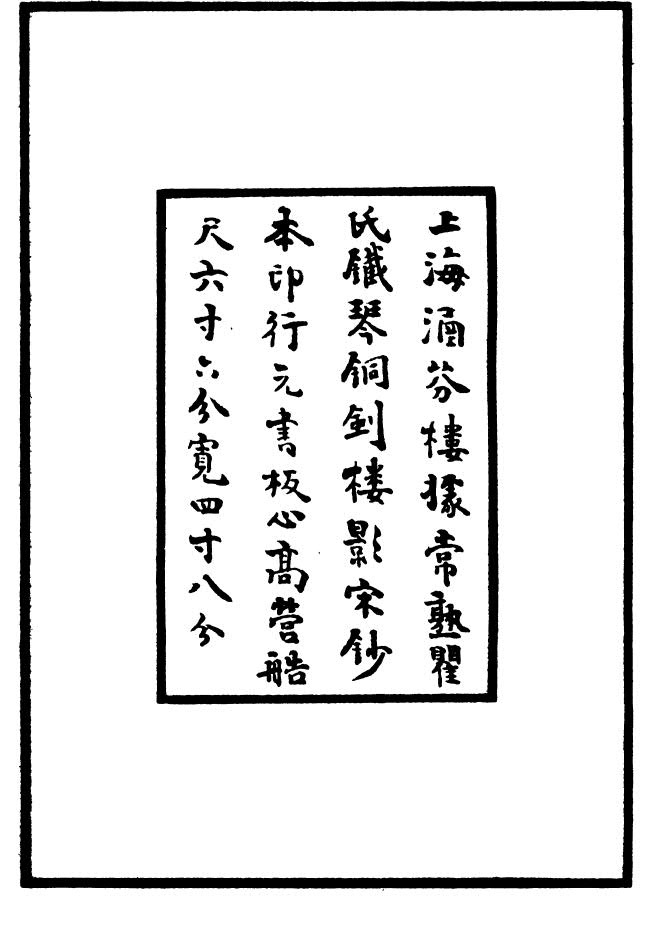 上海涵芬樓據常熟瞿
氏鐵琴銅劍樓影宋鈔
本印行元書板心高營造
尺六寸六分寬四寸八分